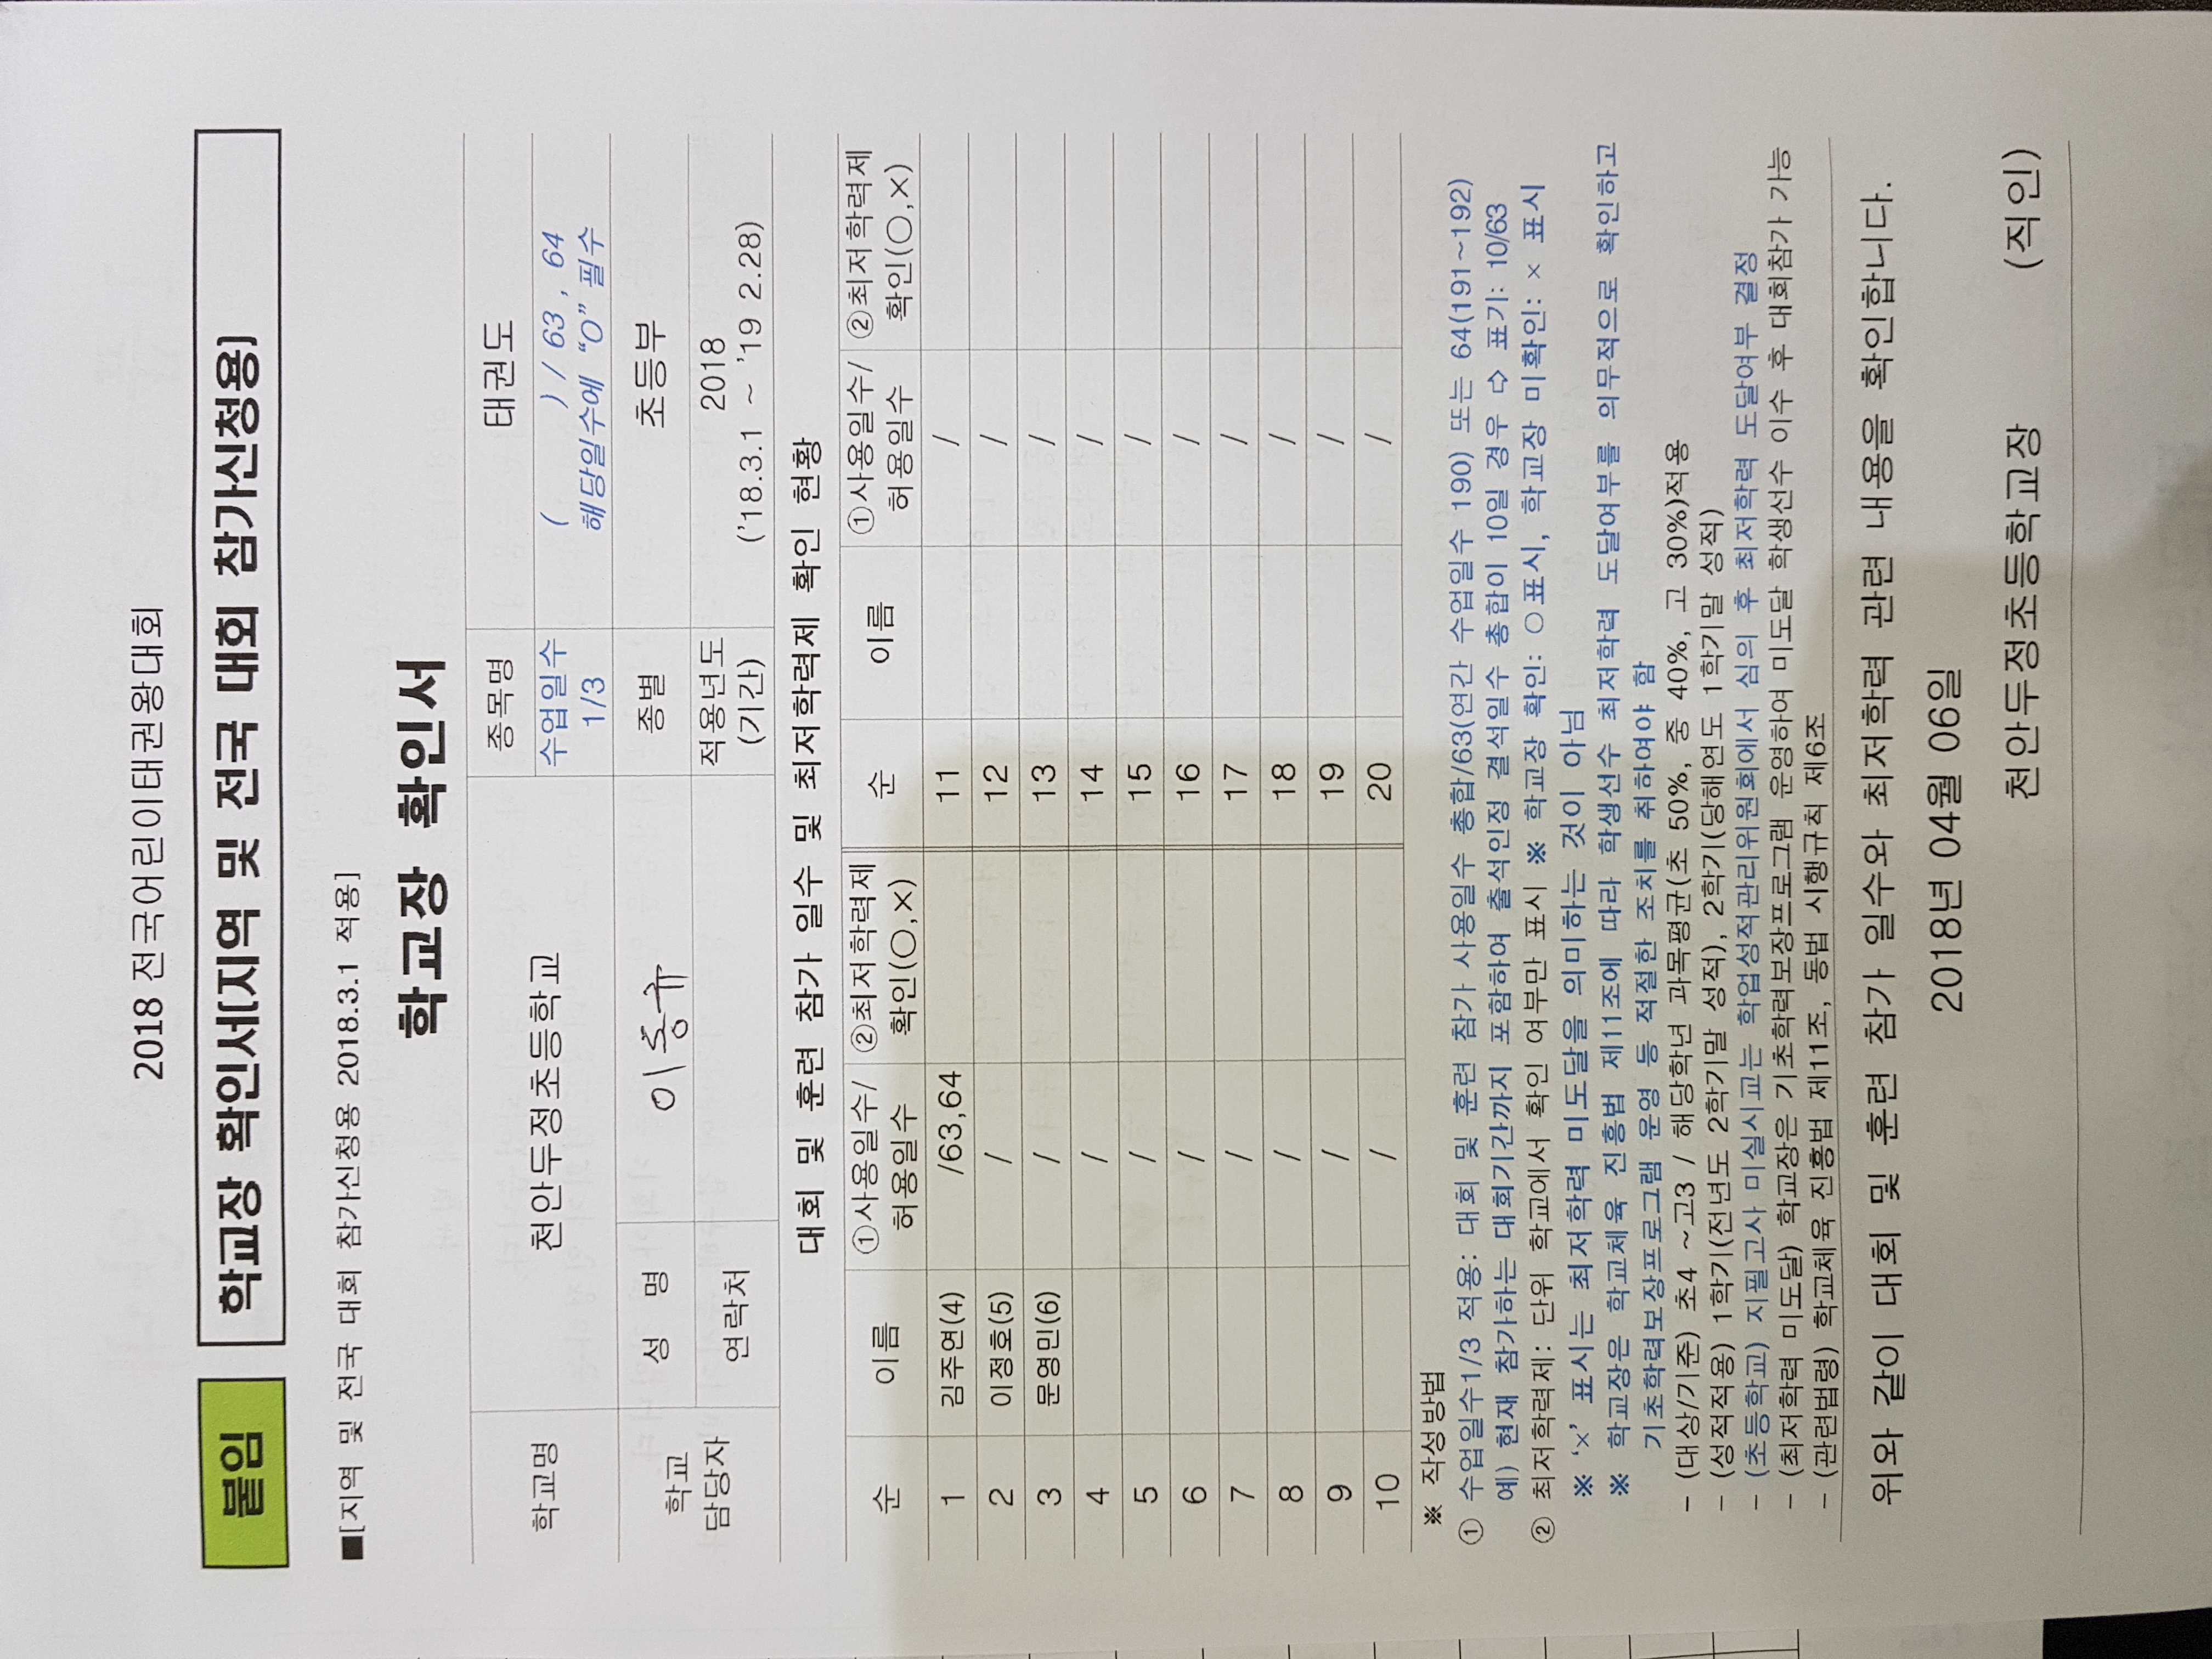 2018 전국어린이태권왕대회
붙임 학교장 확인서(지역 및 전국 대회 참가신청용)
■[지역 및 전국 대회 참가신청용 2018.3.1 적용]
학교장 확인서
학교명 천안두정초등학교 종목명 태권도
수업일수 1/3 ( ) / 63 , 64
해당일수에 “O” 필수
학교 담당자 성 명 이종규 종별 초등부
연락처 적용년도 (기간) 2018
('18.3.1 ~ '19 2.28)
대회 및 훈련 참가 일수 및 최저학력제 확인 현황
순 이름 ①사용일수/허용일수 ②최저학력제 확인(○,×) 순 이름 ①사용일수/허용일수 ②최저학력제 확인(○,×)
1 김주연(4) /63,64 11 /
2 이정호(5) / 12 /
3 문영민(6) / 13 /
4 / 14 /
5 / 15 /
6 / 16 /
7 / 17 /
8 / 18 /
9 / 19 /
10 / 20 /
※ 작성방법
① 수업일수1/3 적용: 대회 및 훈련 참가 사용일수 총합/63(연간 수업일수 190) 또는 64(191~192)
예) 현재 참가하는 대회기간까지 포함하여 출석인정 결석일수 총합이 10일 경우 ⇨ 표기: 10/63
② 최저학력제: 단위 학교에서 확인 여부만 표시 ※ 학교장 확인: ○표시, 학교장 미확인: × 표시
※ ‘×’ 표시는 최저학력 미도달을 의미하는 것이 아님
※ 학교장은 학교체육 진흥법 제11조에 따라 학생선수 최저학력 도달여부를 의무적으로 확인하고
기초학력보장프로그램 운영 등 적절한 조치를 취하여야 함
- (대상/기준) 초4 ~고3 / 해당학년 과목평균(초 50%, 중 40%, 고 30%)적용
- (성적적용) 1학기(전년도 2학기말 성적), 2학기(당해연도 1학기말 성적)
- (초등학교) 지필고사 미실시교는 학업성적관리위원회에서 심의 후 최저학력 도달여부 결정
- (최저학력 미도달) 학교장은 기초학력보장프로그램 운영하여 미도달 학생선수 이수 후 대회참가 가능
- (관련법령) 학교체육 진흥법 제11조, 동법 시행규칙 제6조
위와 같이 대회 및 훈련 참가 일수와 최저학력 관련 내용을 확인합니다.
2018년 04월 06일
천안두정초등학교장 (직인)